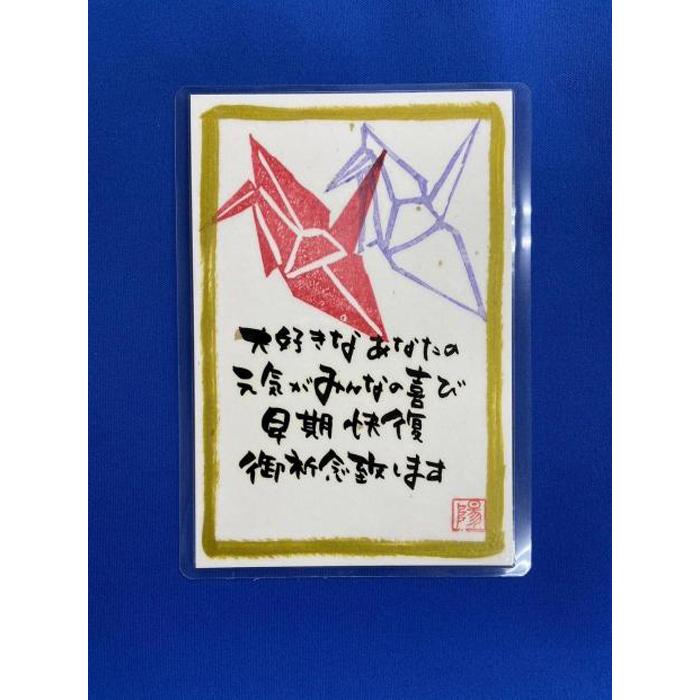 大好きなあなたの
元気がみんなの喜び
早期快復
御祈念致します
陽